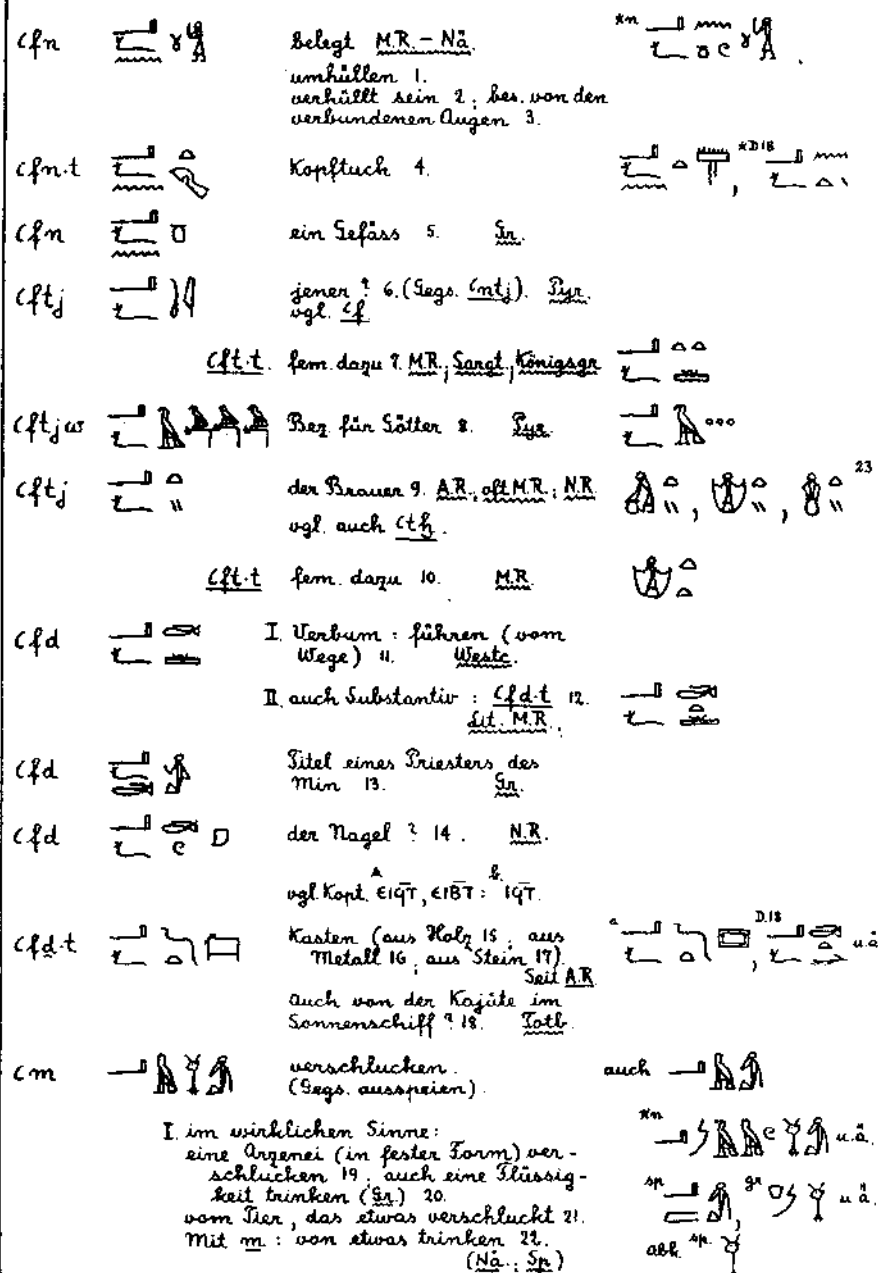 ꜥfn belegt M.R. – Nä.
umhüllen 1.
verhüllt sein 2; bes. von den
verbundenen Augen 3.
ꜥfn·t Kopftuch 4. D18
ꜥfn ein Gefäss 5. Gr.
ꜥftj jener ? 6. (Gegs. ꜥntj). Pyr.
vgl. ꜥf
ꜥft·t. fem. dazu 7. M.R.; Sargt.; Königsgr
ꜥftjw Bez. für Götter 8. Pyr.
ꜥftj der Brauer 9. A.R.; oft M.R.; N.R. 23
vgl. auch ꜥtḫ.
ꜥft·t fem. dazu 10. M.R.
ꜥfd I. Verbum : führen (vom
Wege) 11. Westc.
II. auch Substantiv : ꜥfd·t 12.
Lit. M.R.
ꜥfd Titel eines Priesters des
Min 13. Gr.
ꜥfd der Nagel ? 14. N.R.
vgl. Kopt. ⲉⲓϥⲧ, ⲉⲓⲃⲧ : ⲓϥⲧ.
ꜥfḏ·t Kasten (aus Holz 15; aus a D.18 u.ä
Metall 16; aus Stein 17).
Seit A.R.
auch von der Kajüte im
Sonnenschiff ? 18. Totb.
ꜥm verschlucken. auch
(Gegs. ausspeien).
I. im wirklichen Sinne:
eine Arzenei (in fester Form) ver- u.ä.
schlucken 19; auch eine Flüssig-
keit trinken (Gr.) 20. sp gr u ä.
vom Tier, das etwas verschluckt 21.
Mit m : von etwas trinken 22. abk. sp.
(Nä.; Sp)